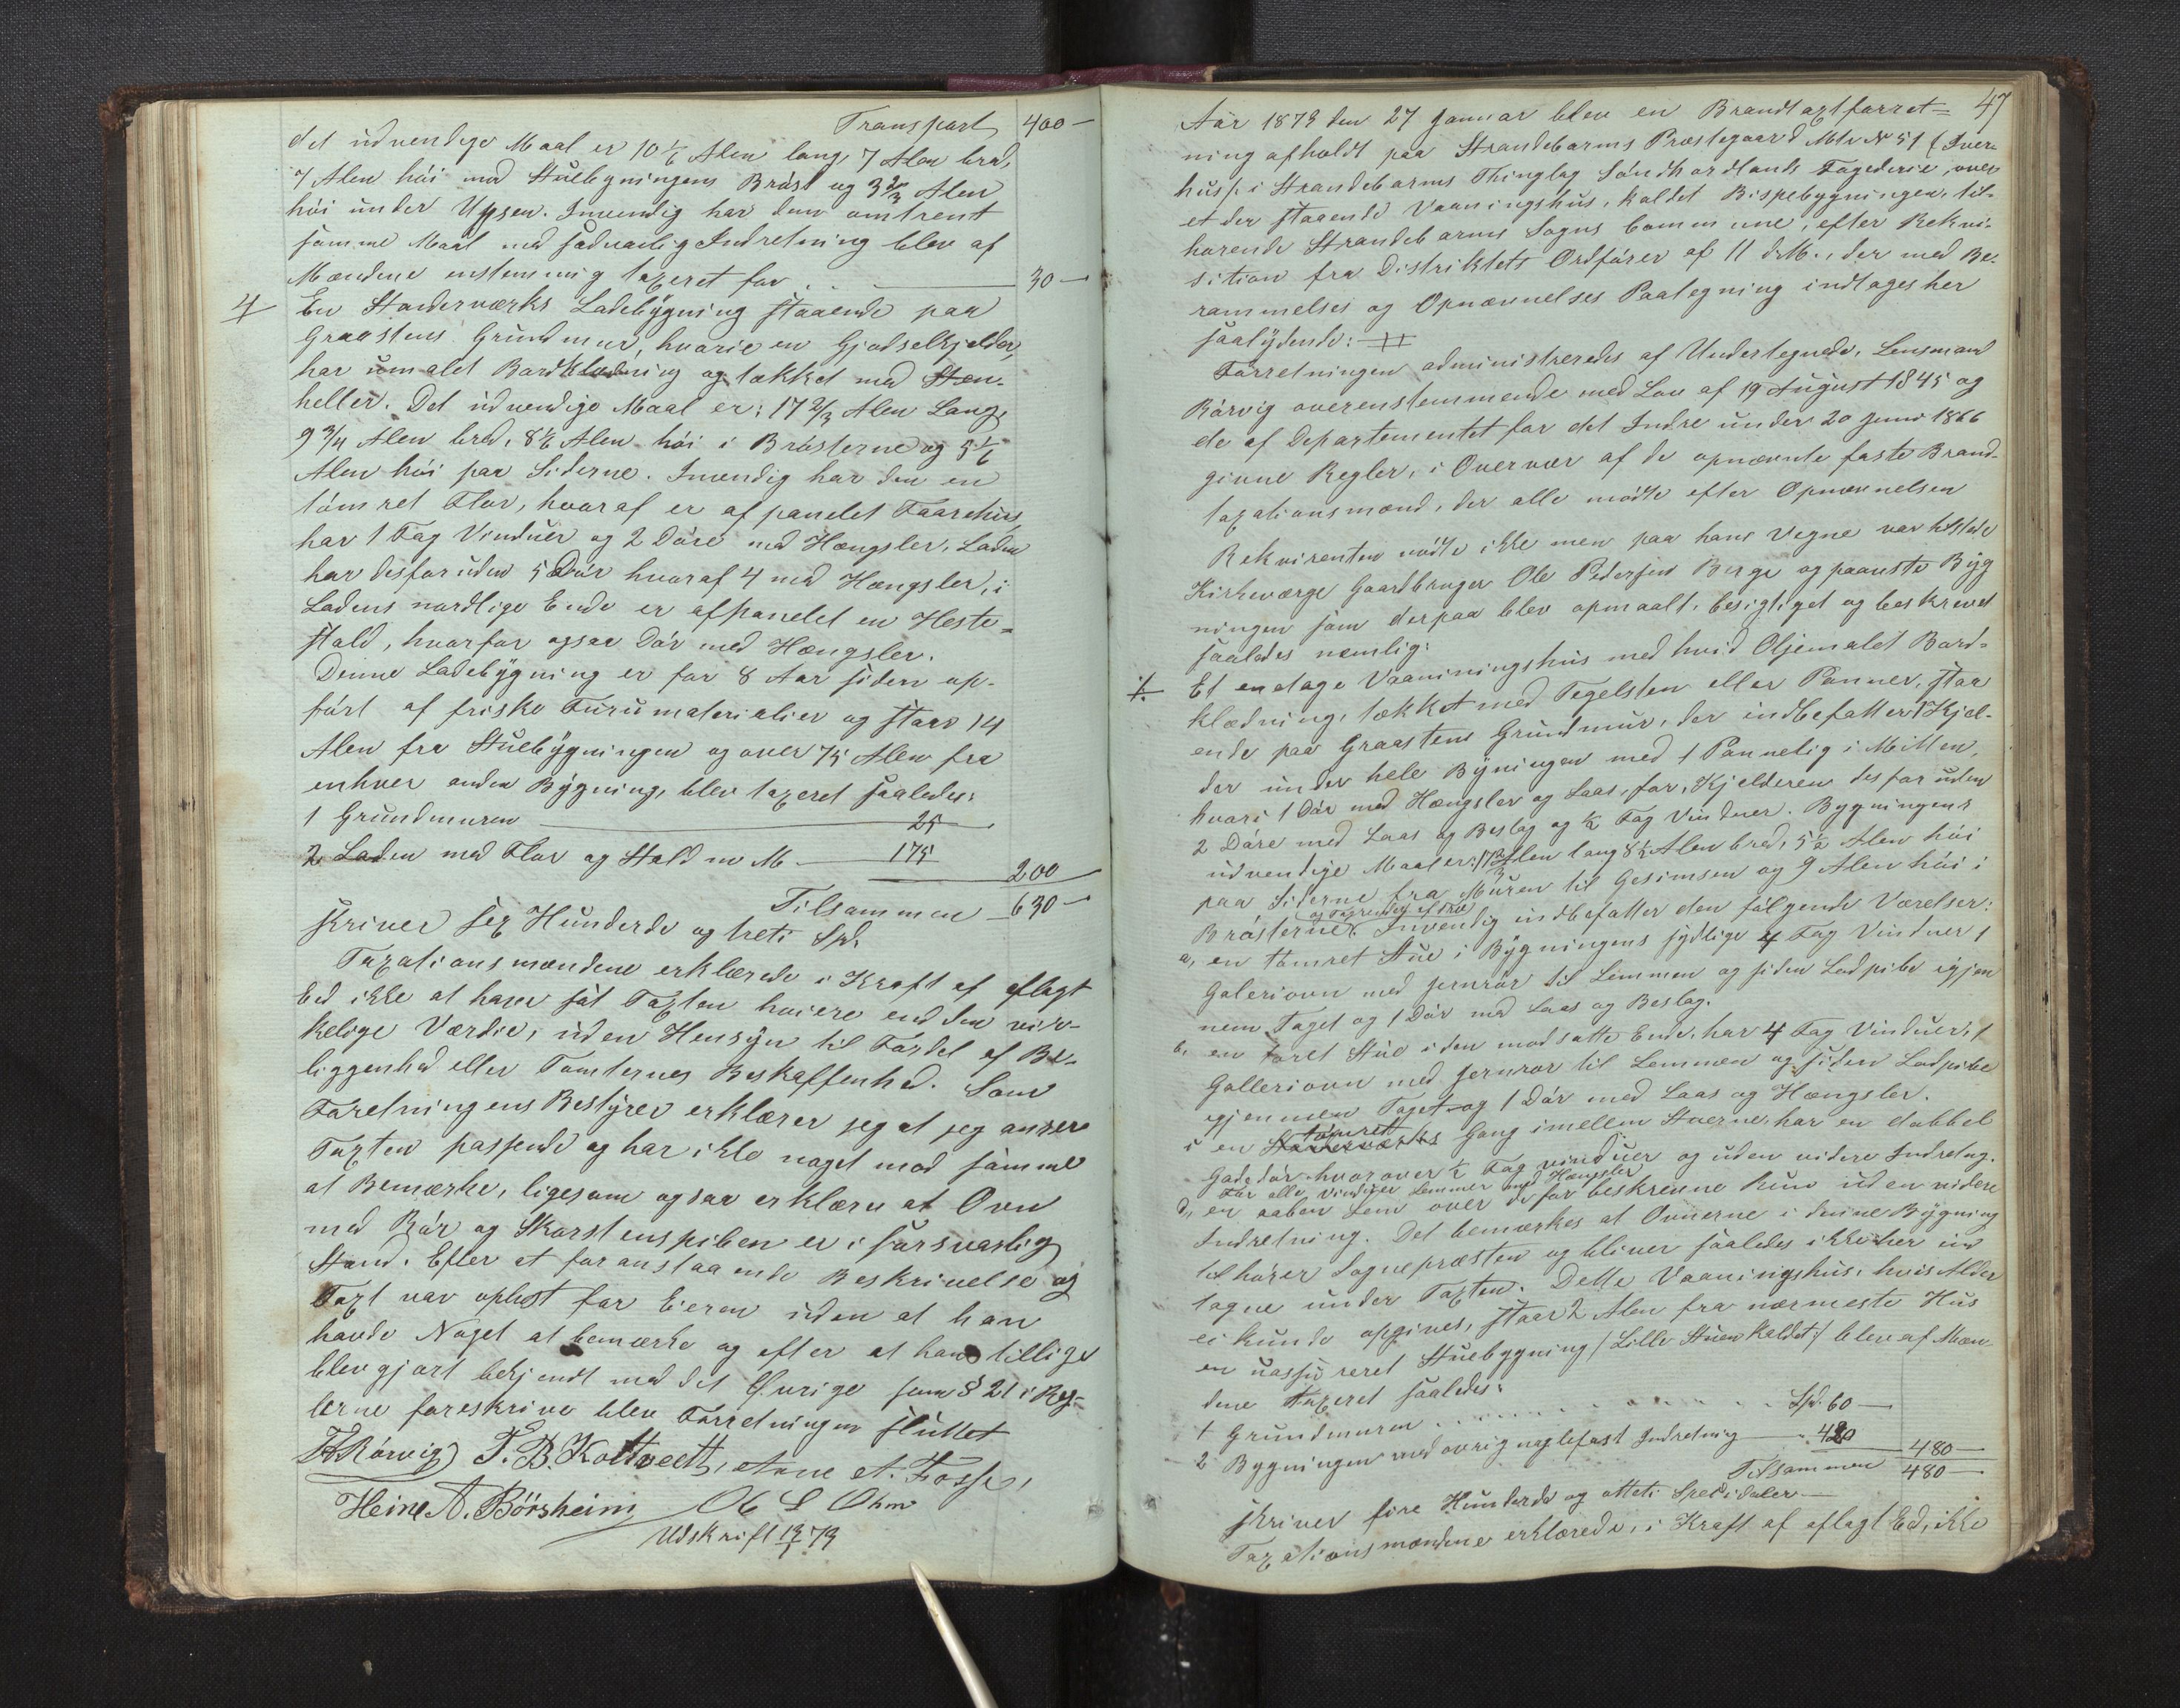 Transport 400 —
det udvendige Maal er 10 1/6 Alen lang, 7 Alen bred,
7 Alen høi med Stuebygningens Bröst og 3 2/3 Alen
høi under Upsen. Invendig har den omtrent
samme Maal med sædvanlig Indretning blev af
Mændene enstemmig taxeret for 30 —
4 En Standerværks Ladebygning staaende paa
Graastens Grundmur, hvorie en Gjødselkjelder,
har umalet Bordklædning og tækket med Sten-
heller. Det udvendige Maal er: 17 2/3 Alen Lang,
9 3/4 Alen bred, 8 1/2 Alen høi i Brösterne og 5 1/6
Alen høi paa Siderne. Invendig har den en
tömret Flor, hvoraf er afpanelet Faarehus,
har 1 Fag Vinduer og 2 Döre med Hængsler, Laden
har desforuden 5 Dör hvoraf 4 med Hængsler, i
Ladens nordlige Ende er afpanelet en Heste-
stald, hvorfor ogsaa Dör med Hængsler.
Denne Ladebygning er for 8 Aar siden op-
fört af friske Furumaterialier og staar 14
Alen fra Stuebygningen og over 75 Alen fra
enhver anden Bygning, blev taxeret saaledes:
1 Grundmuren 25
2 Laden med Flor og Stald m M. 175
200
Tilsammen 630 —
skriver sex Hunderde og treti Spd.
Taxationsmændene erklærede i Kraft af aflagt
Ed ikke at have sat Taxten høiere end den vir-
kelige Værdie, uden Hensyn til Fordel af Be-
liggenhed eller Tomternes Beskaffenhed. Som
Forretningens Bestyrer erklærer jeg at jeg anser
Taxten passende og har ikke noget mod samme
at Bemærke, ligesom ogsaa erklæres at Ovn
med Rör og Skorstenspiben er i forsvarlig
Stand. Efter at foranstaaende Beskrivelse og
Taxt var oplæst for Eieren uden at han
havde Noget at bemærke og efter at han tillige
blev gjort bekjendt med det Øvrige som § 21 i Reg-
lerne foreskrive blev Forretningen sluttet
Rörvig T. B. Kottveett, Arne A. Fosse,
Heine A. Börsheim Ole L Ohm
Udskrift 13/1 79
47
Aar 1879 den 27 Januar blev en Brandtaxtforret-
ning afholdt paa Strandebarms Præstegaard Mtr No 51 (Iver-
hus) i Strandebarms Thinglag Söndhordlands Fogederie, over
et der staaende Vaaningshus, kaldet Bispebygningen, til-
hørende Strandebarms Sogns Commune, efter Rekvi-
sition fra Distriktets Ordförer af 11 d.M., der med Be-
rammelses og Opnævnelses Paategning indtages her
saalydende: ++
Forretningen administreredes af Undertegnede, Lensmand
Rörvig overenstemmende med Lov af 19 August 1845 og
de af Departementet for det Indre under 20 Juni 1866
givne Regler, i Overvær af de opnævnte faste Brand-
taxationsmænd, der alle mödte efter Opnævnelsen
Rekvirenten mödte ikke men paa hans Vegne var tilstede
Kirkeværge Gaardbruger Ole Pedersen Berge og paaviste Byg
ningen som derpaa blev opmaalt, besigtiget og beskrevet
saaledes nemlig:
1. Et enetage Vaaningshus med hvid Oljemalet Bord-
klædning, tækket med Tegelsten eller Panner, staa
ende paa Graastens Grundmur, der indbefatter 1 Kjel-
der under hele Bygningen med 1 Pannelig i Mitten,
hvori 1 Dör med Hængsler og Laas, for, Kjelderen desforuden
2 Döre med Laas og Beslag og 1/2 Fag Vinduer. Bygningens
udvendige Maal er: 17 2/3 Alen lang 8 1/2 Alen bred, 5 1/2 Alen höi
paa Siderne fra Muren til Gesimsen og 9 Alen höi i
Brösterne. Invendig indbefatter den fölgende Værelser:
a, en tömret Stue i Bygningens sydlige 4 Fag Vinduer 1
Galeriovn med Jernrör til Lemmen og siden Ladpibe igjen
nem Taget og 1 Dör med Laas og Beslag.
b, en foret Stue i den modsatte Ende, har 4 Fag Vinduer, 1
Galleriovn med Jernrör til Lemmen og siden Ladpibe
igjennem Taget og 1 Dör med Laas og Hængsler.
tömrett
c en Standerværks Gang imellem Stuerne, har en dobbel
Gadedör hvorover 1/2 Fag vinduer og uden videre Indretng.
For alle vinduer Lemmer med Hængsler
d, en aaben Lem over de for beskrevne Rum uden videre
Indretning. Det bemærkes at Ovnerne i denne Bygning
tilhörer Sognepræsten og bliver saaledes ikke her ind
tagne under Taxten. Dette Vaaningshus, hvis Alder
ei kunde opgives, staar 2 Alen fra nærmeste Hus
en uassureret Stuebygning /: Lille Stuen kaldet :/ blev af Mæn-
dene taxeret saaledes:
1 Grundmuren Spd. 60 —
2 Bygningen med övrig naglefast Indretning 420 480 —
Tilsammen 480 —
skriver fire Hunderde og otteti Speciedaler —
Taxationsmændene erklærede, i Kraft af aflagt Ed, ikke